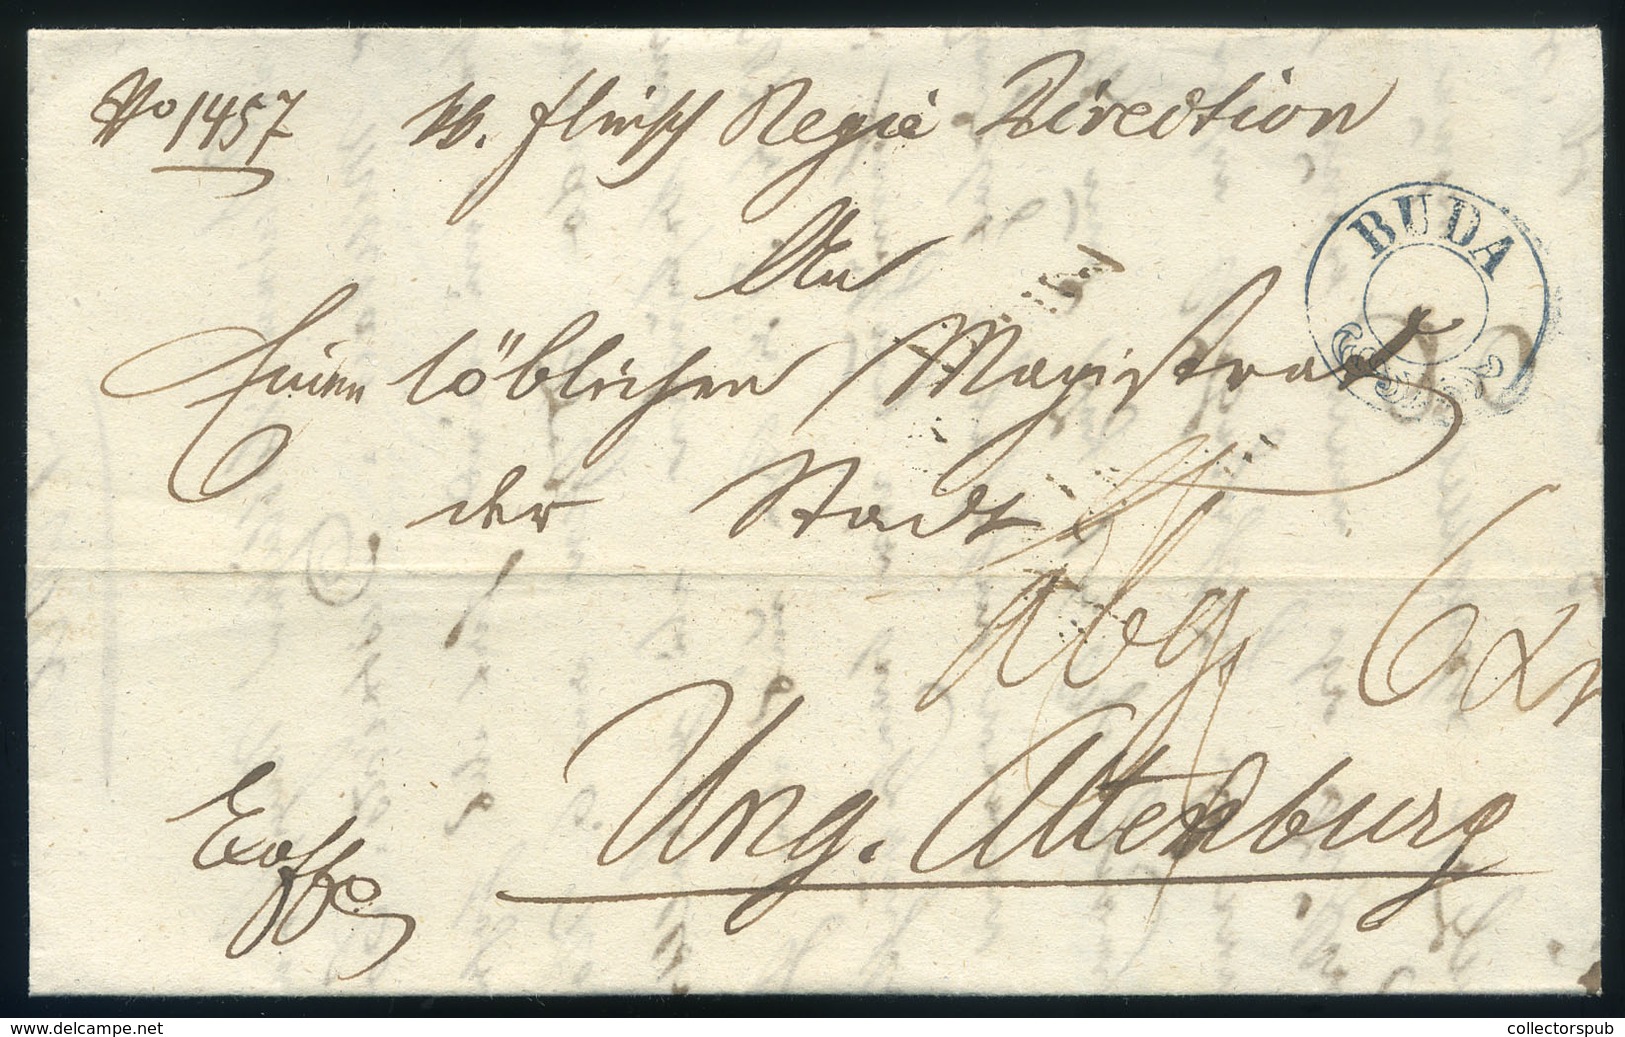 No 1457 Fleisch Regie Direction
BUDA
An
Einen löblichen Magistrat
der Stadt
6 xr
Ung. Altenburg
www.delcampe.net
collectorspub